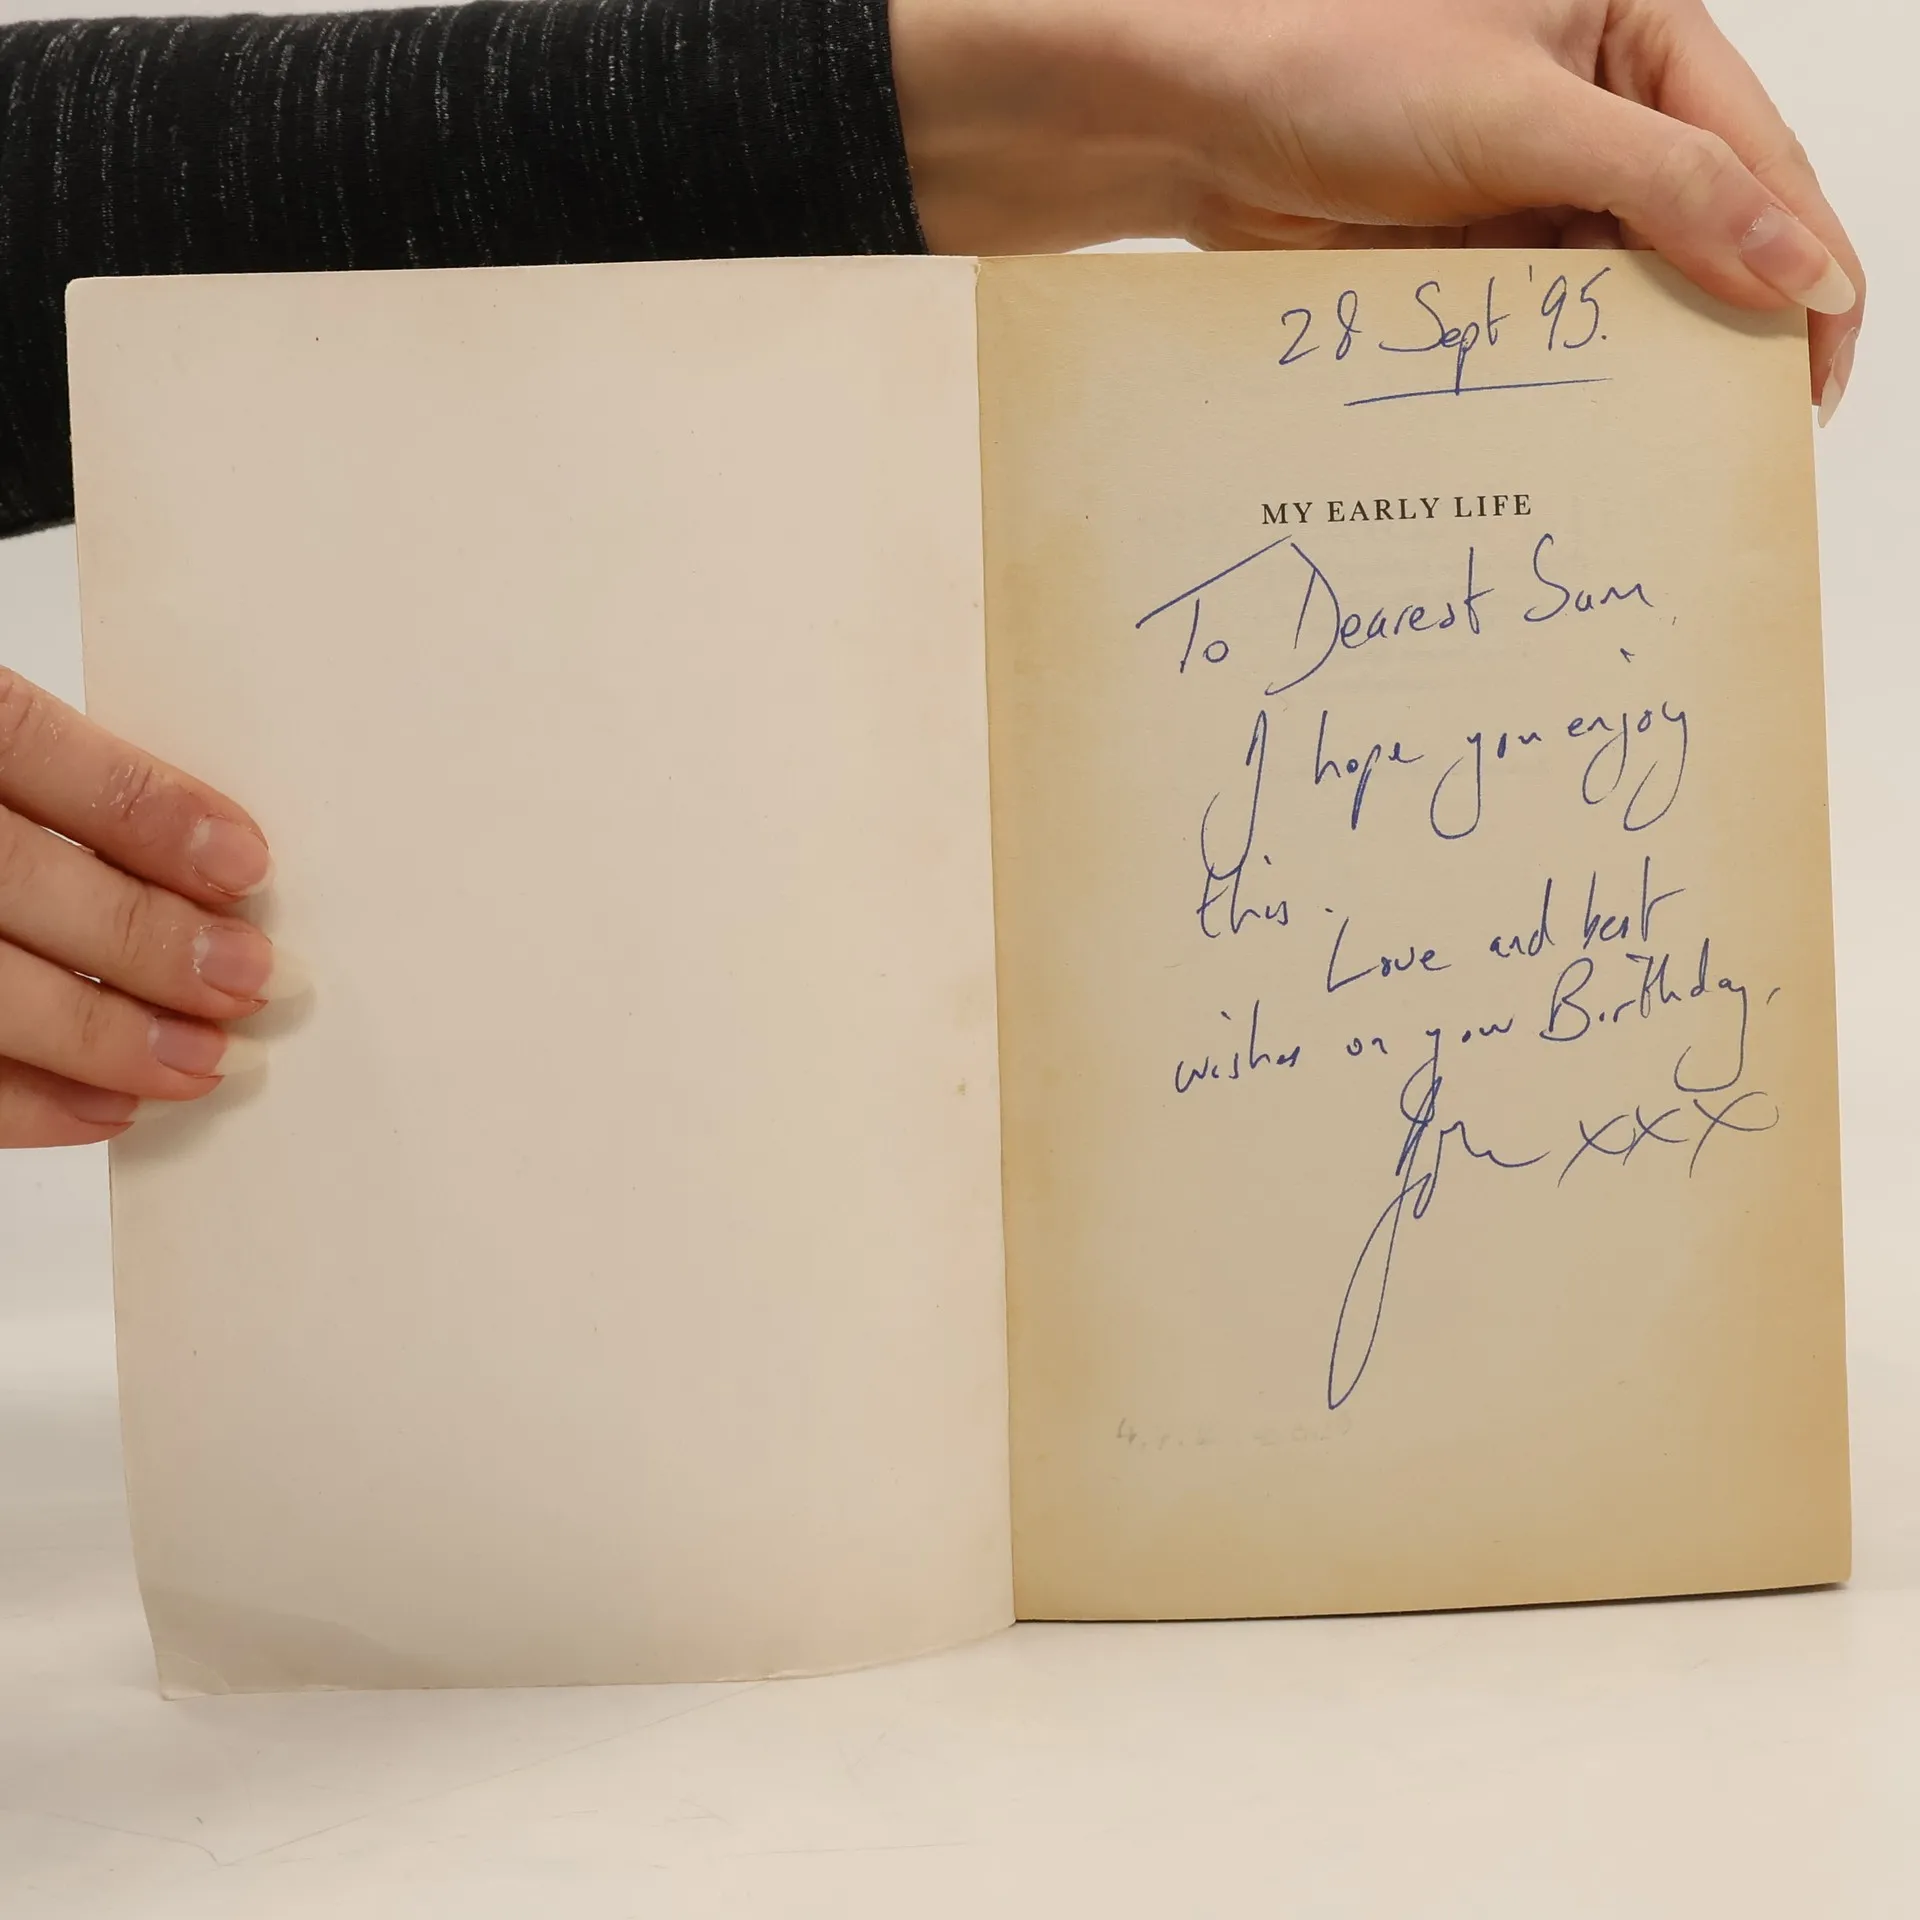 28 Sept '95.
MY EARLY LIFE
To Dearest Sam,
I hope you enjoy
this.
Love and best
wishes on your Birthday,
John xxx